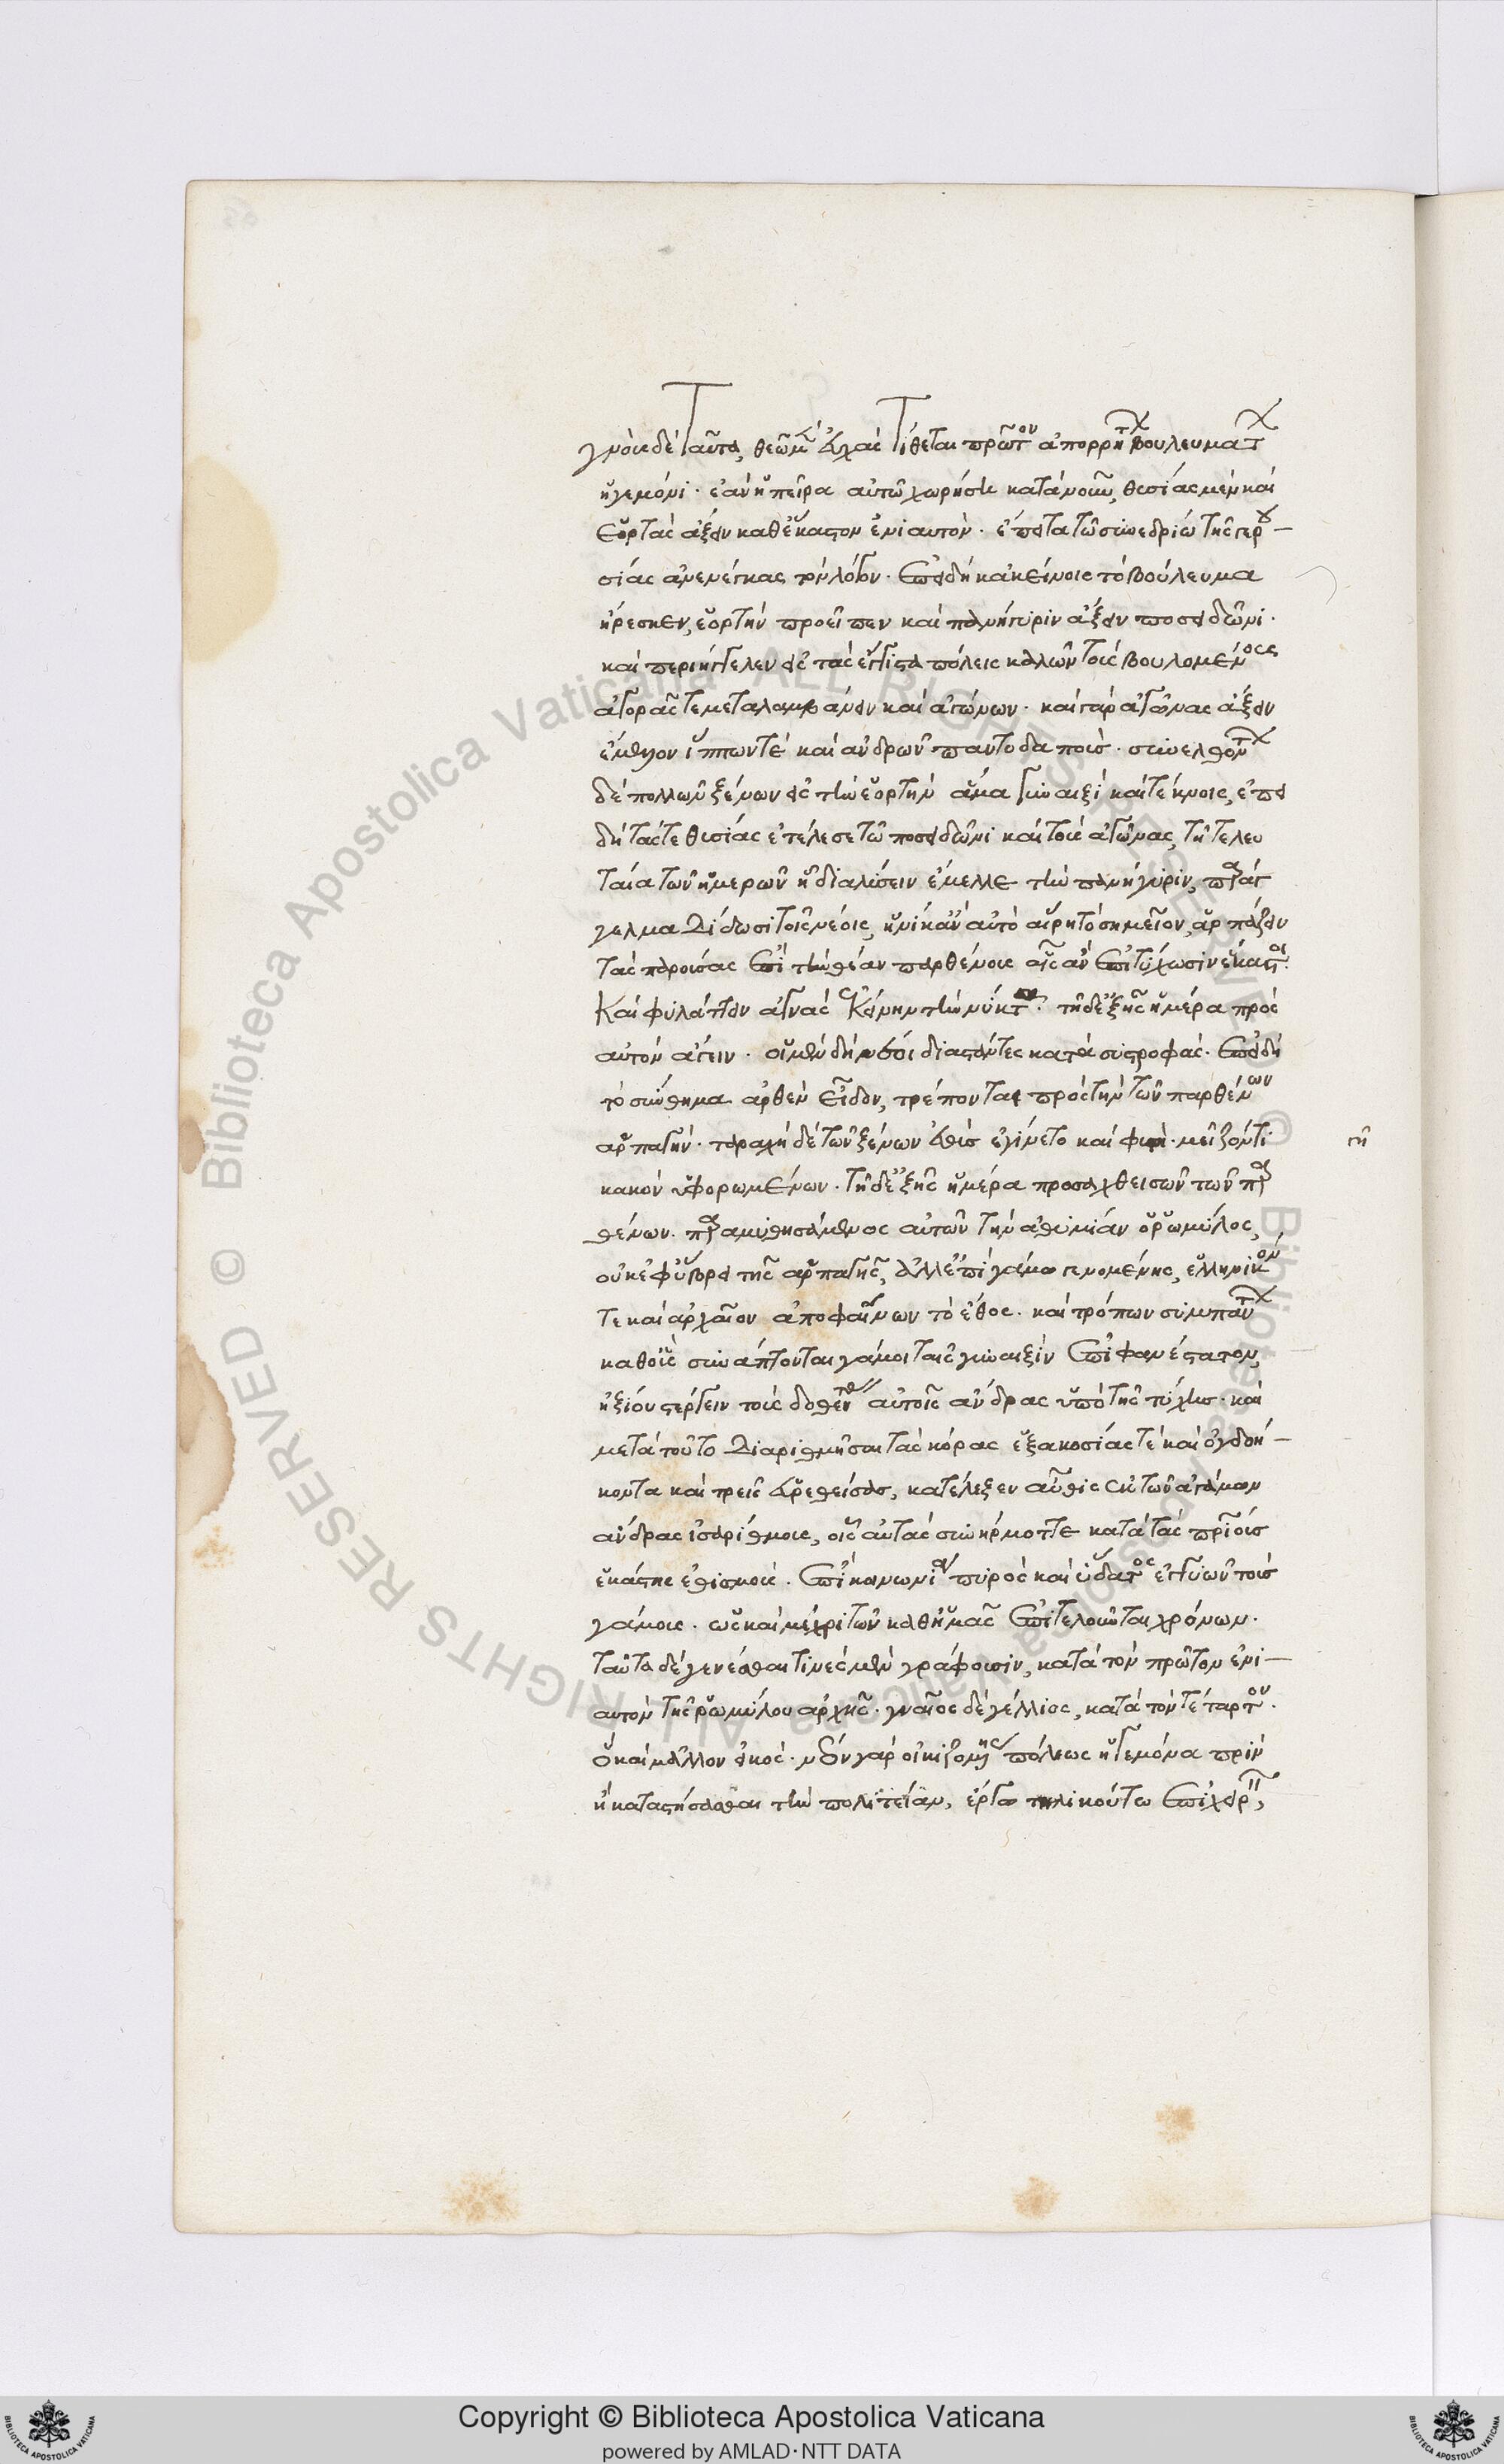 γνοὺς δὲ ταῦτα, θεῶ μὲν εὐχὰς τίθεται πρῶτον ἀπορρήτων βουλευμάτων
ἡγεμόνι· ἐὰν ἡ πεῖρα αὐτῶ χωρήση κατὰ νοῦν, θυσίας μὲν καὶ
ἑορτὰς ἄξειν καθ' ἕκαστον ἐνιαυτόν· ἔπειτα τῶ συνεδρίω τῆς γερου
σίας ἀνενέγκας τὸν λόγον. ἐπειδὴ κἀκείνοις τὸ βούλευμα
ἤρεσκεν, ἑορτὴν προεῖπεν καὶ πανήγυριν ἄξειν ποσειδῶνι·
καὶ περιήγγελεν εἰς τὰς ἔγγιστα πόλεις καλῶν τοὺς βουλομένους
ἀγορᾶς τε μεταλαμβάνειν καὶ ἀγώνων· καὶ γὰρ ἀγῶνας ἄξειν
ἔμελλον ἵππων τὲ καὶ ἀνδρῶν παντοδαπούς· συνελθόντων
δὲ πολλῶν ξένων εἰς τὴν ἑορτὴν ἅμα γυναιξὶ καὶ τέκνοις, ἐπει
δὴ τάς τε θυσίας ἐτέλεσε τῶ ποσειδῶνι καὶ τοὺς ἀγῶνας, τῆ τελευ
ταία τῶν ἡμερῶν ἧ διαλύσειν ἔμελλε τὴν πανήγυριν, παράγ
γελμα δίδωσι τοῖς νέοις, ἡνίκ' ἂν αὐτὸ αἴρη τὸ σημεῖον, ἁρπάζειν
τὰς παρούσας ἐπὶ τὴν θέαν παρθένους αἷς ἂν ἐπιτύχωσιν ἕκαστοι·
Καὶ φυλάττειν ἁγνὰς ἐκείνην τὴν νύκτα· τῆ δ' ἑξῆς ἡμέρα πρὸς
αὐτὸν ἄγειν· οἱ μὲν δὴ νέοι διαστάντες κατὰ συστροφάς. ἐπειδὴ
τὸ σύνθημα ἀρθὲν εἶδον, τρέπονται πρὸς τὴν τῶν παρθένων
ἁρπαγήν· ταραχὴ δὲ τῶν ξένων εὐθὺς ἐγίνετο καὶ φυγή· μεῖζόν τι
γῆ
κακὸν ὑφορωμένων. τῆ δ' ἑξῆς ἡμέρα προσαχθεισῶν τῶν παρ
θένων. παραμυθησάμενος αὐτῶν τὴν ἀθυμίαν ὁ ῥωμύλος,
οὐκ ἐφ' ὕβρει τῆς ἁρπαγῆς, ἀλλ' ἐπὶ γάμω γενομένης, ἑλληνικόν
τε καὶ ἀρχαῖον ἀποφαίνων τὸ ἔθος. καὶ τρόπων συμπάντων
καθ' οὓς συνάπτονται γάμοι ταῖς γυναιξὶν ἐπιφανέστατον,
ἠξίου στέργειν τοὺς δοθέντας αὐτοῖς ἄνδρας ὑπὸ τῆς τύχης· καὶ
μετὰ τοῦτο διαριθμῆσαι τὰς κόρας ἑξακοσίας τὲ καὶ ὀγδοή
κοντα καὶ τρεῖς εὑρεθείσας, κατέλεξεν αὖθις ἐκ τῶν ἀγάμων
ἄνδρας ἰσαρίθμους, οἷς αὐτὰς συνήρμοττε κατὰ τὰς πατρίους
ἑκάστης ἐθισμούς. ἐπὶ κοινωνία πυρὸς καὶ ὕδατος ἐγγυῶν τοὺς
γάμους· ὡς καὶ μέχρι τῶν καθ' ἡμᾶς ἐπιτελοῦνται χρόνων.
ταῦτα δὲ γενέσθαι τινὲς μὲν γράφουσιν, κατὰ τὸν πρῶτον ἐνι
αυτὸν τῆς ῥωμύλου ἀρχῆς. γναῖος δὲ γέλλιος, κατὰ τὸν τέταρτον.
ὃ καὶ μᾶλλον εἰκός· νέον γὰρ οἰκιζομένης πόλεως ἡγεμόνα πρὶν
ἢ καταστήσασθαι τὴν πολιτείαν, ἔργω τηλικούτω ἐπιχειρεῖν,